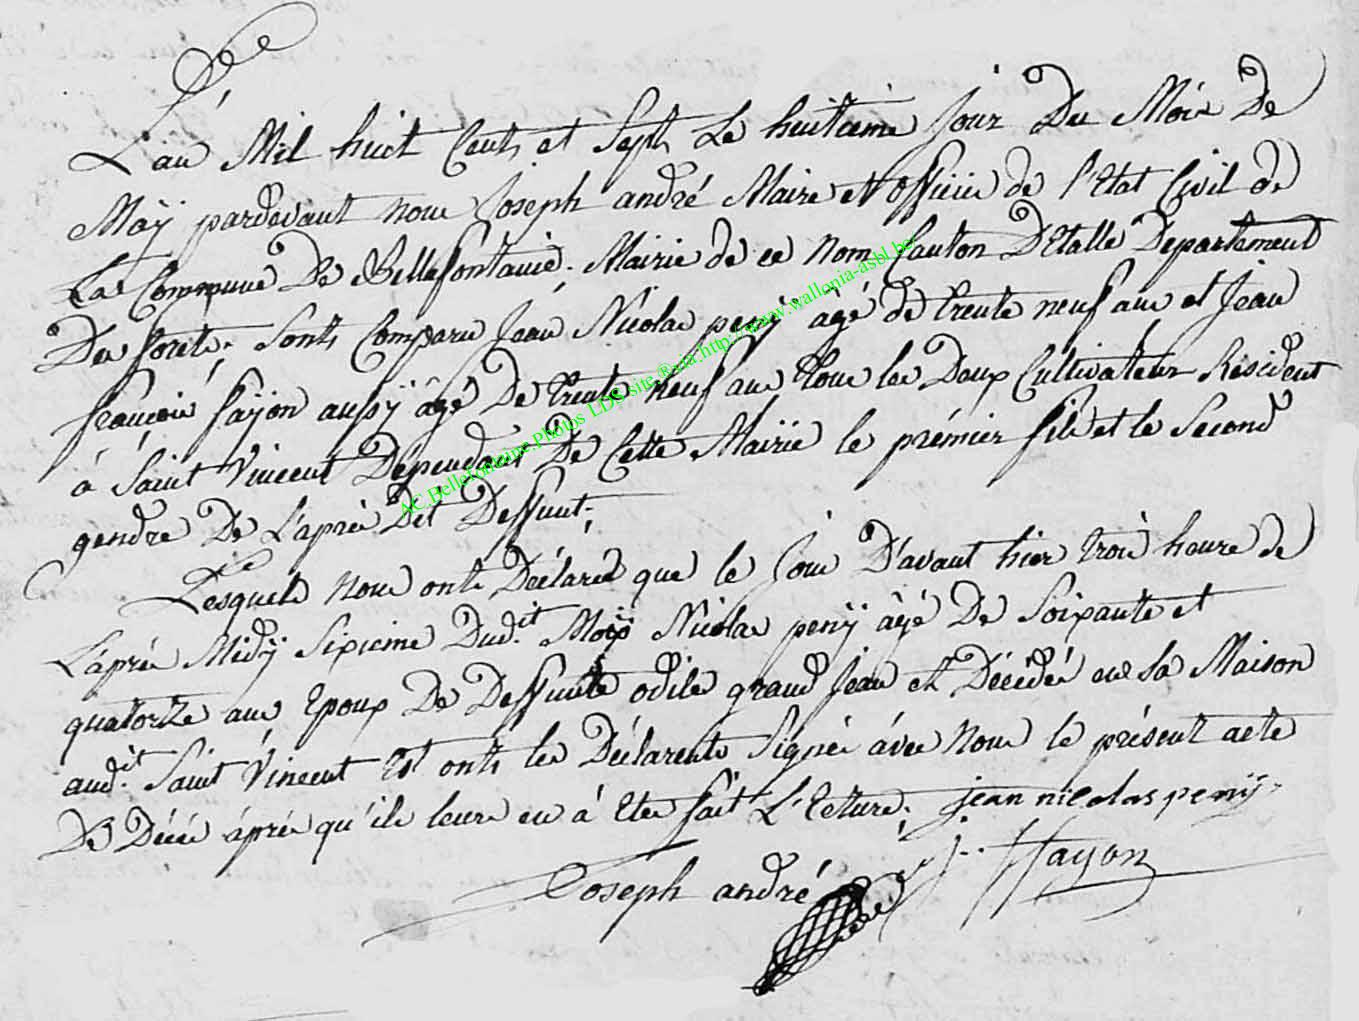 L'an Mil huit Cents et Sept Le huitieme Jour Du Mois De
Maÿ pardevant nous Joseph andré Maire et officier de l'Etat Civil de
La Commune De Bellefontaine, Mairie de ce nom Canton D'Etalle Departement
Des forets. Sonts Comparu Jean Nicolas penÿ âgé de trente neuf ans et Jean
françois fayon aussÿ âgé De trente neuf ans tous les Deux Cultivateurs Résident
á Saint Vincent Dépendant De Cette Mairie le prémier fils et le Second
gendre De L'après Dit Deffunt;
Lesquels nous onts Déclarés que le Jour D'avant hier trois heure de
L'áprés Midÿ Sixieme Dudit Maÿ Nicolas penÿ âgé De Soixante et
quatorze ans Epoux De Deffunte odile grand Jean est Décédé en sa Maison
audit Saint Vincent Et onts les Déclarents Signés ávec Nous le présent acte
De Décés áprés qu'ils leurs en á Eté fait L'Ecture. jean nicolas penÿ
J:: f fayon
Joseph andré
AC.Bellefontaine.Photos LDS site ®via:http://www.wallonia-asbl.be/